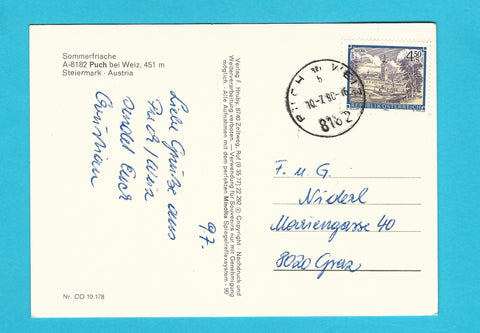 Sommerfrische
A-8182 Puch bei Weiz, 451 m
Steiermark · Austria
97.
Liebe Grüße aus
Puch/Weiz
sendet Euch
Christian
Nr. CO 10.178
Verlag F. Hruby, 8740 Zeltweg, Ruf (0 35 77) 22 292 © Copyright · Nachdruck und
Weiterverarbeitung verboten. — Verwendung für Souvenirs nur mit Genehmigung
möglich. - Alle Aufnahmen mit dem perfekten Minolta Spiegelreflexsystem - 90
PUCH b. WEIZ
8182
4.50
REPUBLIK ÖSTERREICH
F. u. G.
Niderl
Mariengasse 40
8020 Graz